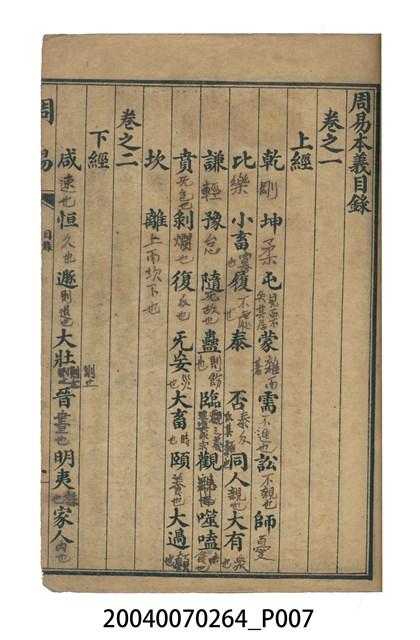 周易本義目錄
卷之一
上經
乾剛坤柔屯見而不失其居蒙雜而著需不進也訟不親也師憂
比樂小畜寡也履不處也泰否泰反同人親也大有眾也
謙輕豫怠隨无故也蠱則飭臨觀噬嗑食也
賁无色也剝爛也復反也无妄災也大畜時也頤養也大過顛也
坎離上而坎下也
卷之二
下經
咸速也恒久也遯則退也大壯則止晉晝也明夷誅也家人內也
周易
目錄
20040070264_P007